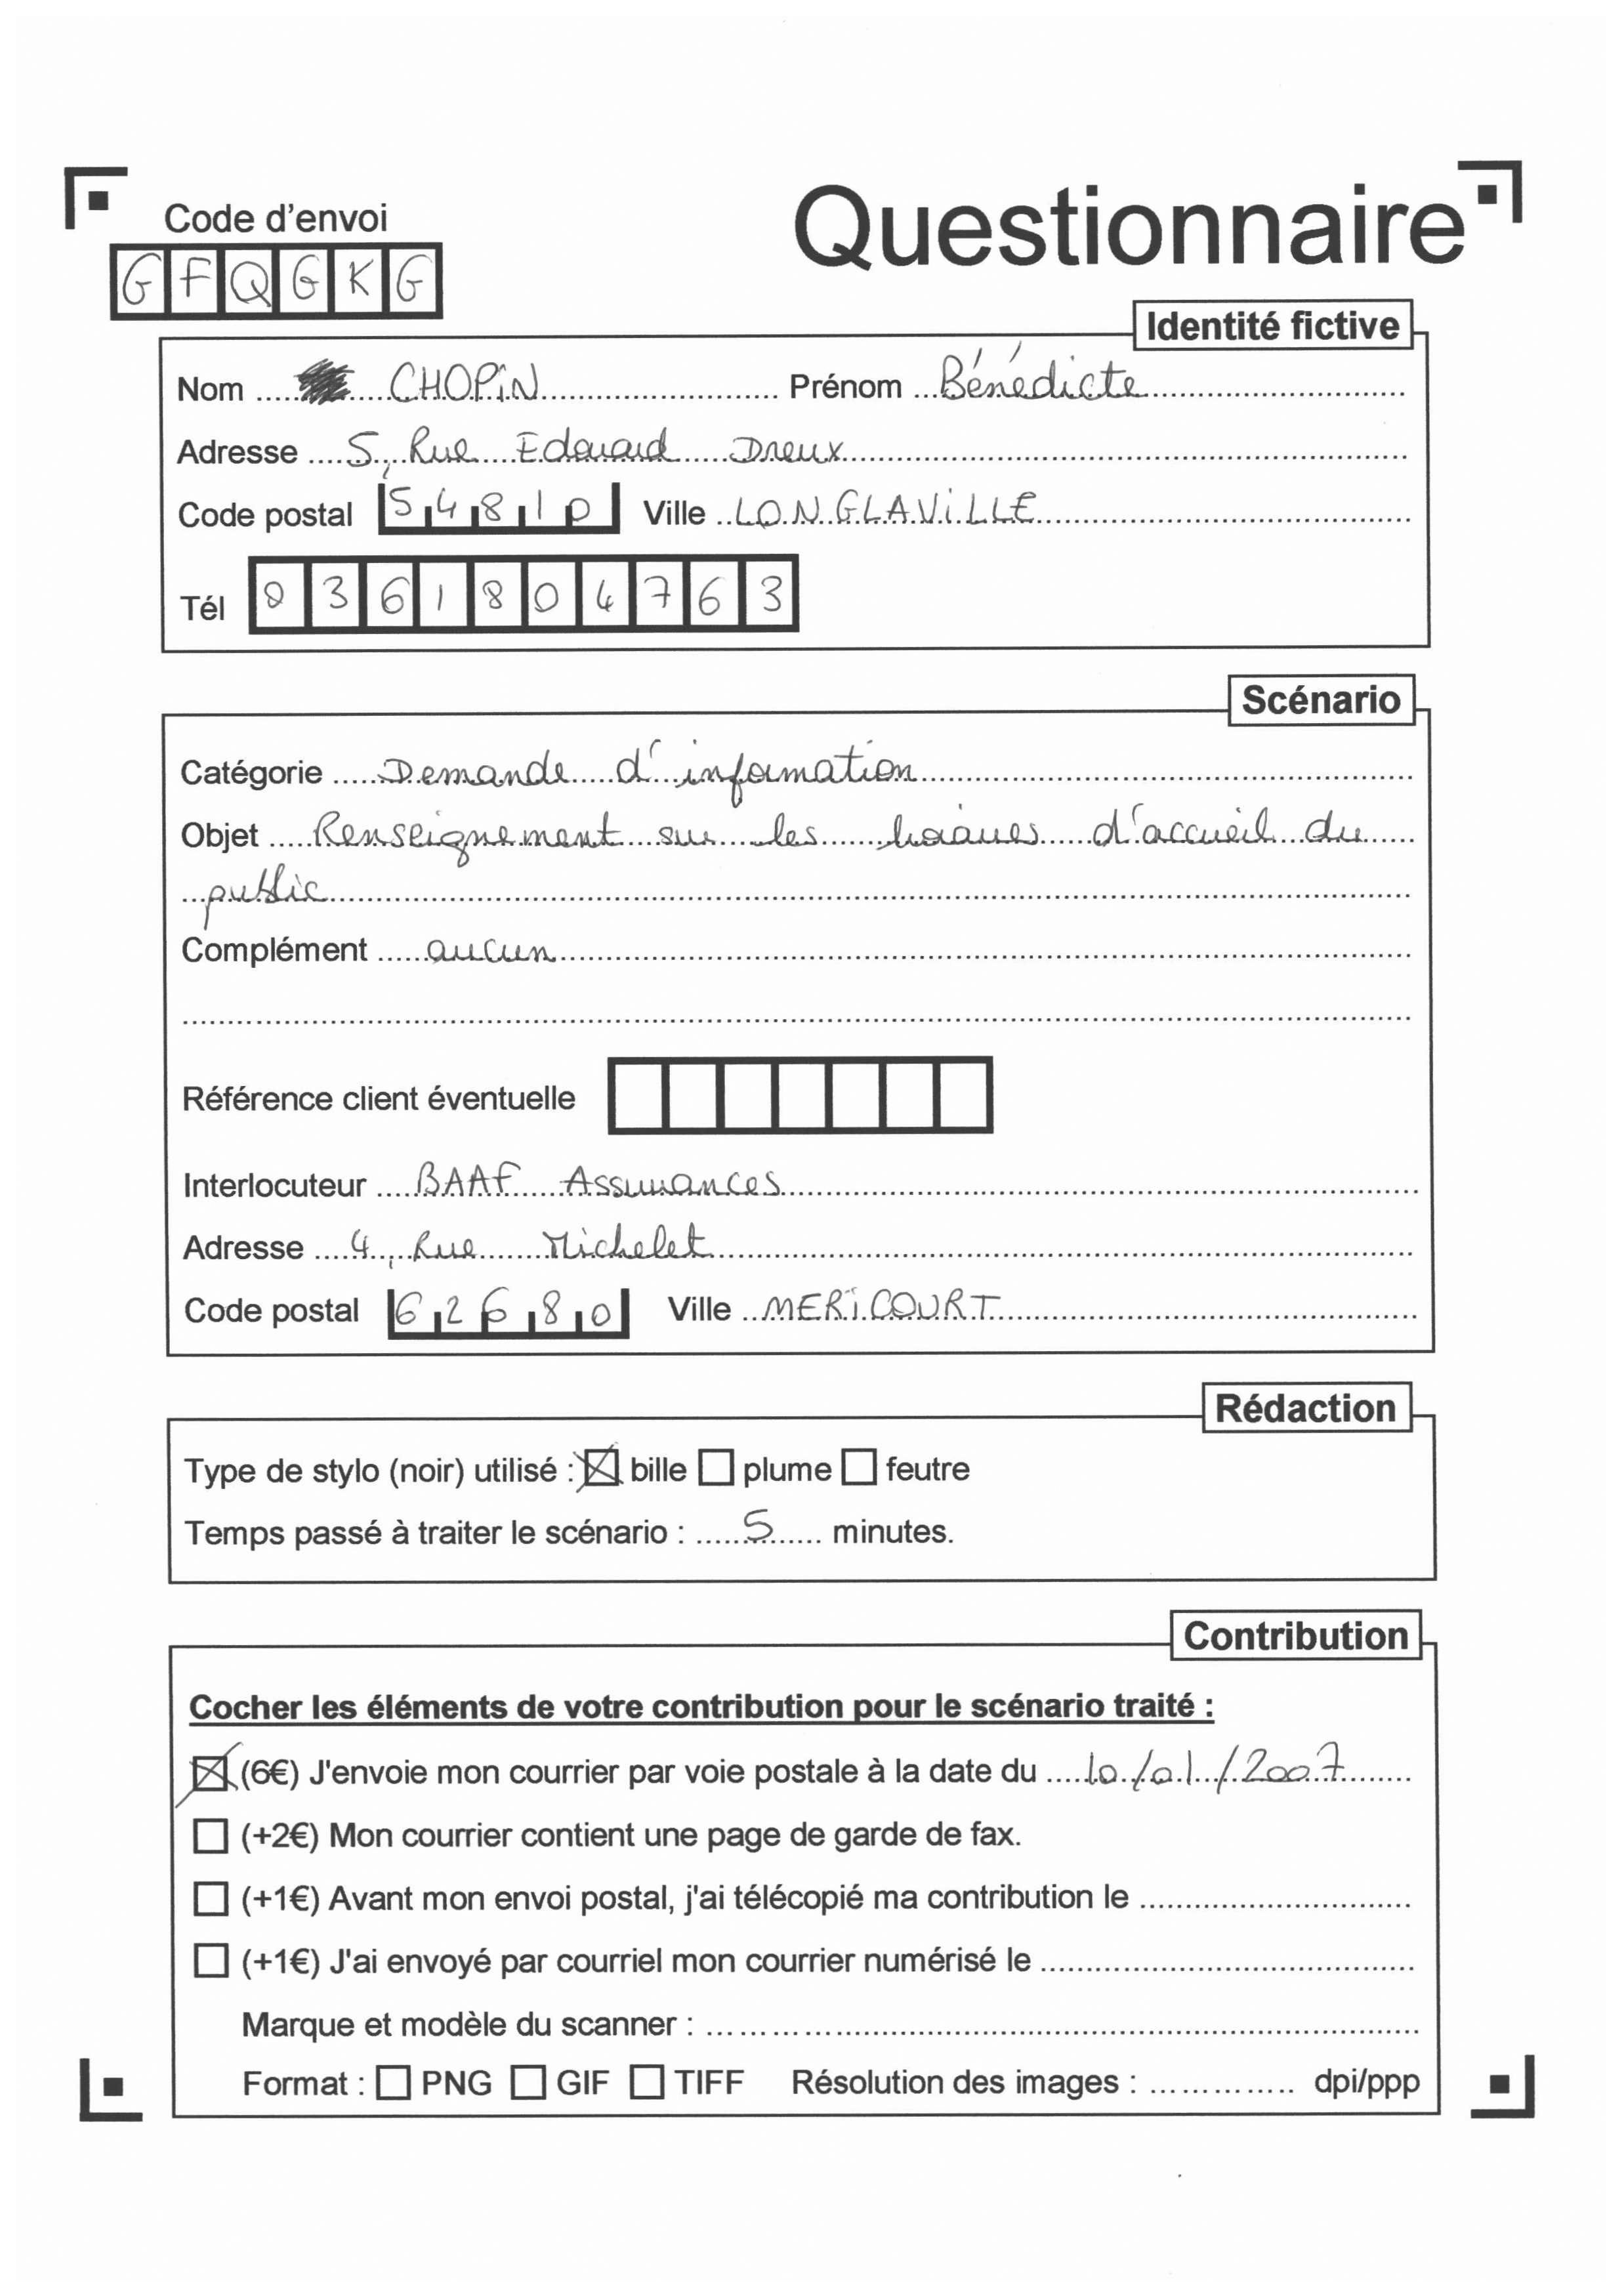 Code d'envoi
Questionnaire
GFQGKG
Identité fictive
Nom ..... CHOPIN ..... Prénom ... Bénédicte .....
Adresse .... 5, Rue Edouard Dreux .....
Code postal 54810 Ville .. LONGLAVILLE .....
Tél 0361804763
Scénario
Catégorie ..... Demande d'information .....
Objet ..... Renseignement sur les horaires d'accueil du
public .....
Complément ..... aucun .....
Référence client éventuelle
Interlocuteur .... BAAF Assurances .....
Adresse .... 4, Rue Michelet .....
Code postal 62680 Ville .. MERICOURT .....
Rédaction
Type de stylo (noir) utilisé : ☒ bille ☐ plume ☐ feutre
Temps passé à traiter le scénario : ..... 5 ..... minutes.
Contribution
Cocher les éléments de votre contribution pour le scénario traité :
☒ (6€) J'envoie mon courrier par voie postale à la date du .... 10/01/2007 .....
☐ (+2€) Mon courrier contient une page de garde de fax.
☐ (+1€) Avant mon envoi postal, j'ai télécopié ma contribution le .....
☐ (+1€) J'ai envoyé par courriel mon courrier numérisé le .....
Marque et modèle du scanner : .....
Format : ☐ PNG ☐ GIF ☐ TIFF Résolution des images : ..... dpi/ppp